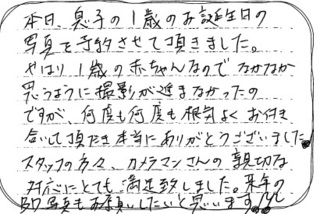 本日、息子の1歳のお誕生日の
写真を予約させて頂きました。
やはり1歳の赤ちゃんなのでなかなか
思うように撮影が進まなかったの
ですが、何度も何度も根気よくお付き
合いして頂き本当にありがとうございました。
スタッフの方々、カメラマンさんの親切な
対応にとても満足致しました。来年の
写真もお願いしたいと思います。